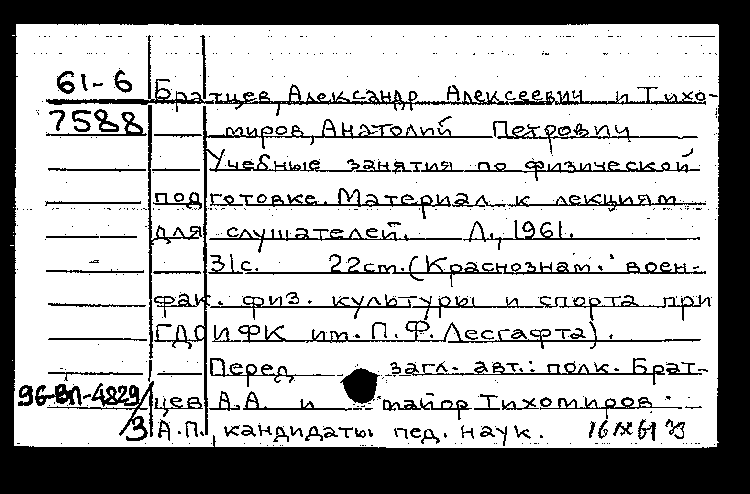 61-6
7588
Братцев, Александр Алексеевич и Тихо-
миров, Анатолий Петрович
Учебные занятия по физической
подготовке. Материал к лекциям
для слушателей. Л., 1961.
31с. 22см. (Краснознам. воен-
фак. физ. культуры и спорта при
ГДОИФК им. П. Ф. Лесгафта).
Перед загл. авт.: полк. Брат-
96-ВП-4829/3
цев А.А. и майор Тихомиров
А.П., кандидаты пед. наук.